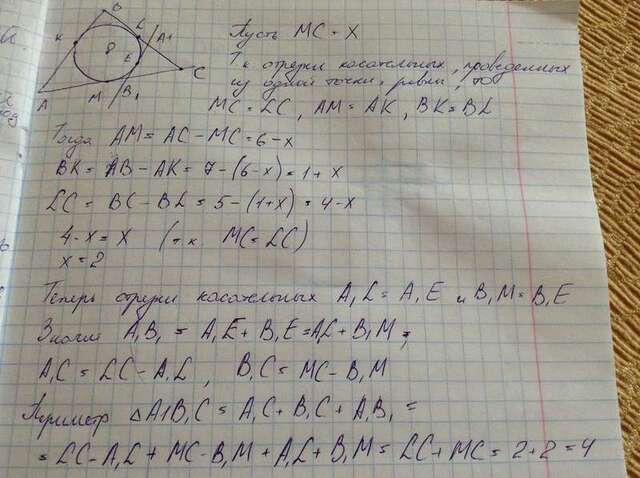 B
L
A1
K
P
E
C
A
M
B1
Пусть MC = x
Тк отрезки касательных, проведенных
из одной точки, равны, то
MC = LC, AM = AK, BK = BL
Тогда AM = AC - MC = 6 - x
BK = AB - AK = 7 - (6 - x) = 1 + x
LC = BC - BL = 5 - (1 + x) = 4 - x
4 - x = x (т к MC = LC)
x = 2
Теперь отрезки касательных A1L = A1E и B1M = B1E
Значит A1B1 = A1E + B1E = AL + B1M =,
A1C = LC - A1L, B1C = MC - B1M
Периметр △A1B1C = A1C + B1C + A1B1 =
= LC - A1L + MC - B1M + A1L + B1M = LC + MC = 2 + 2 = 4